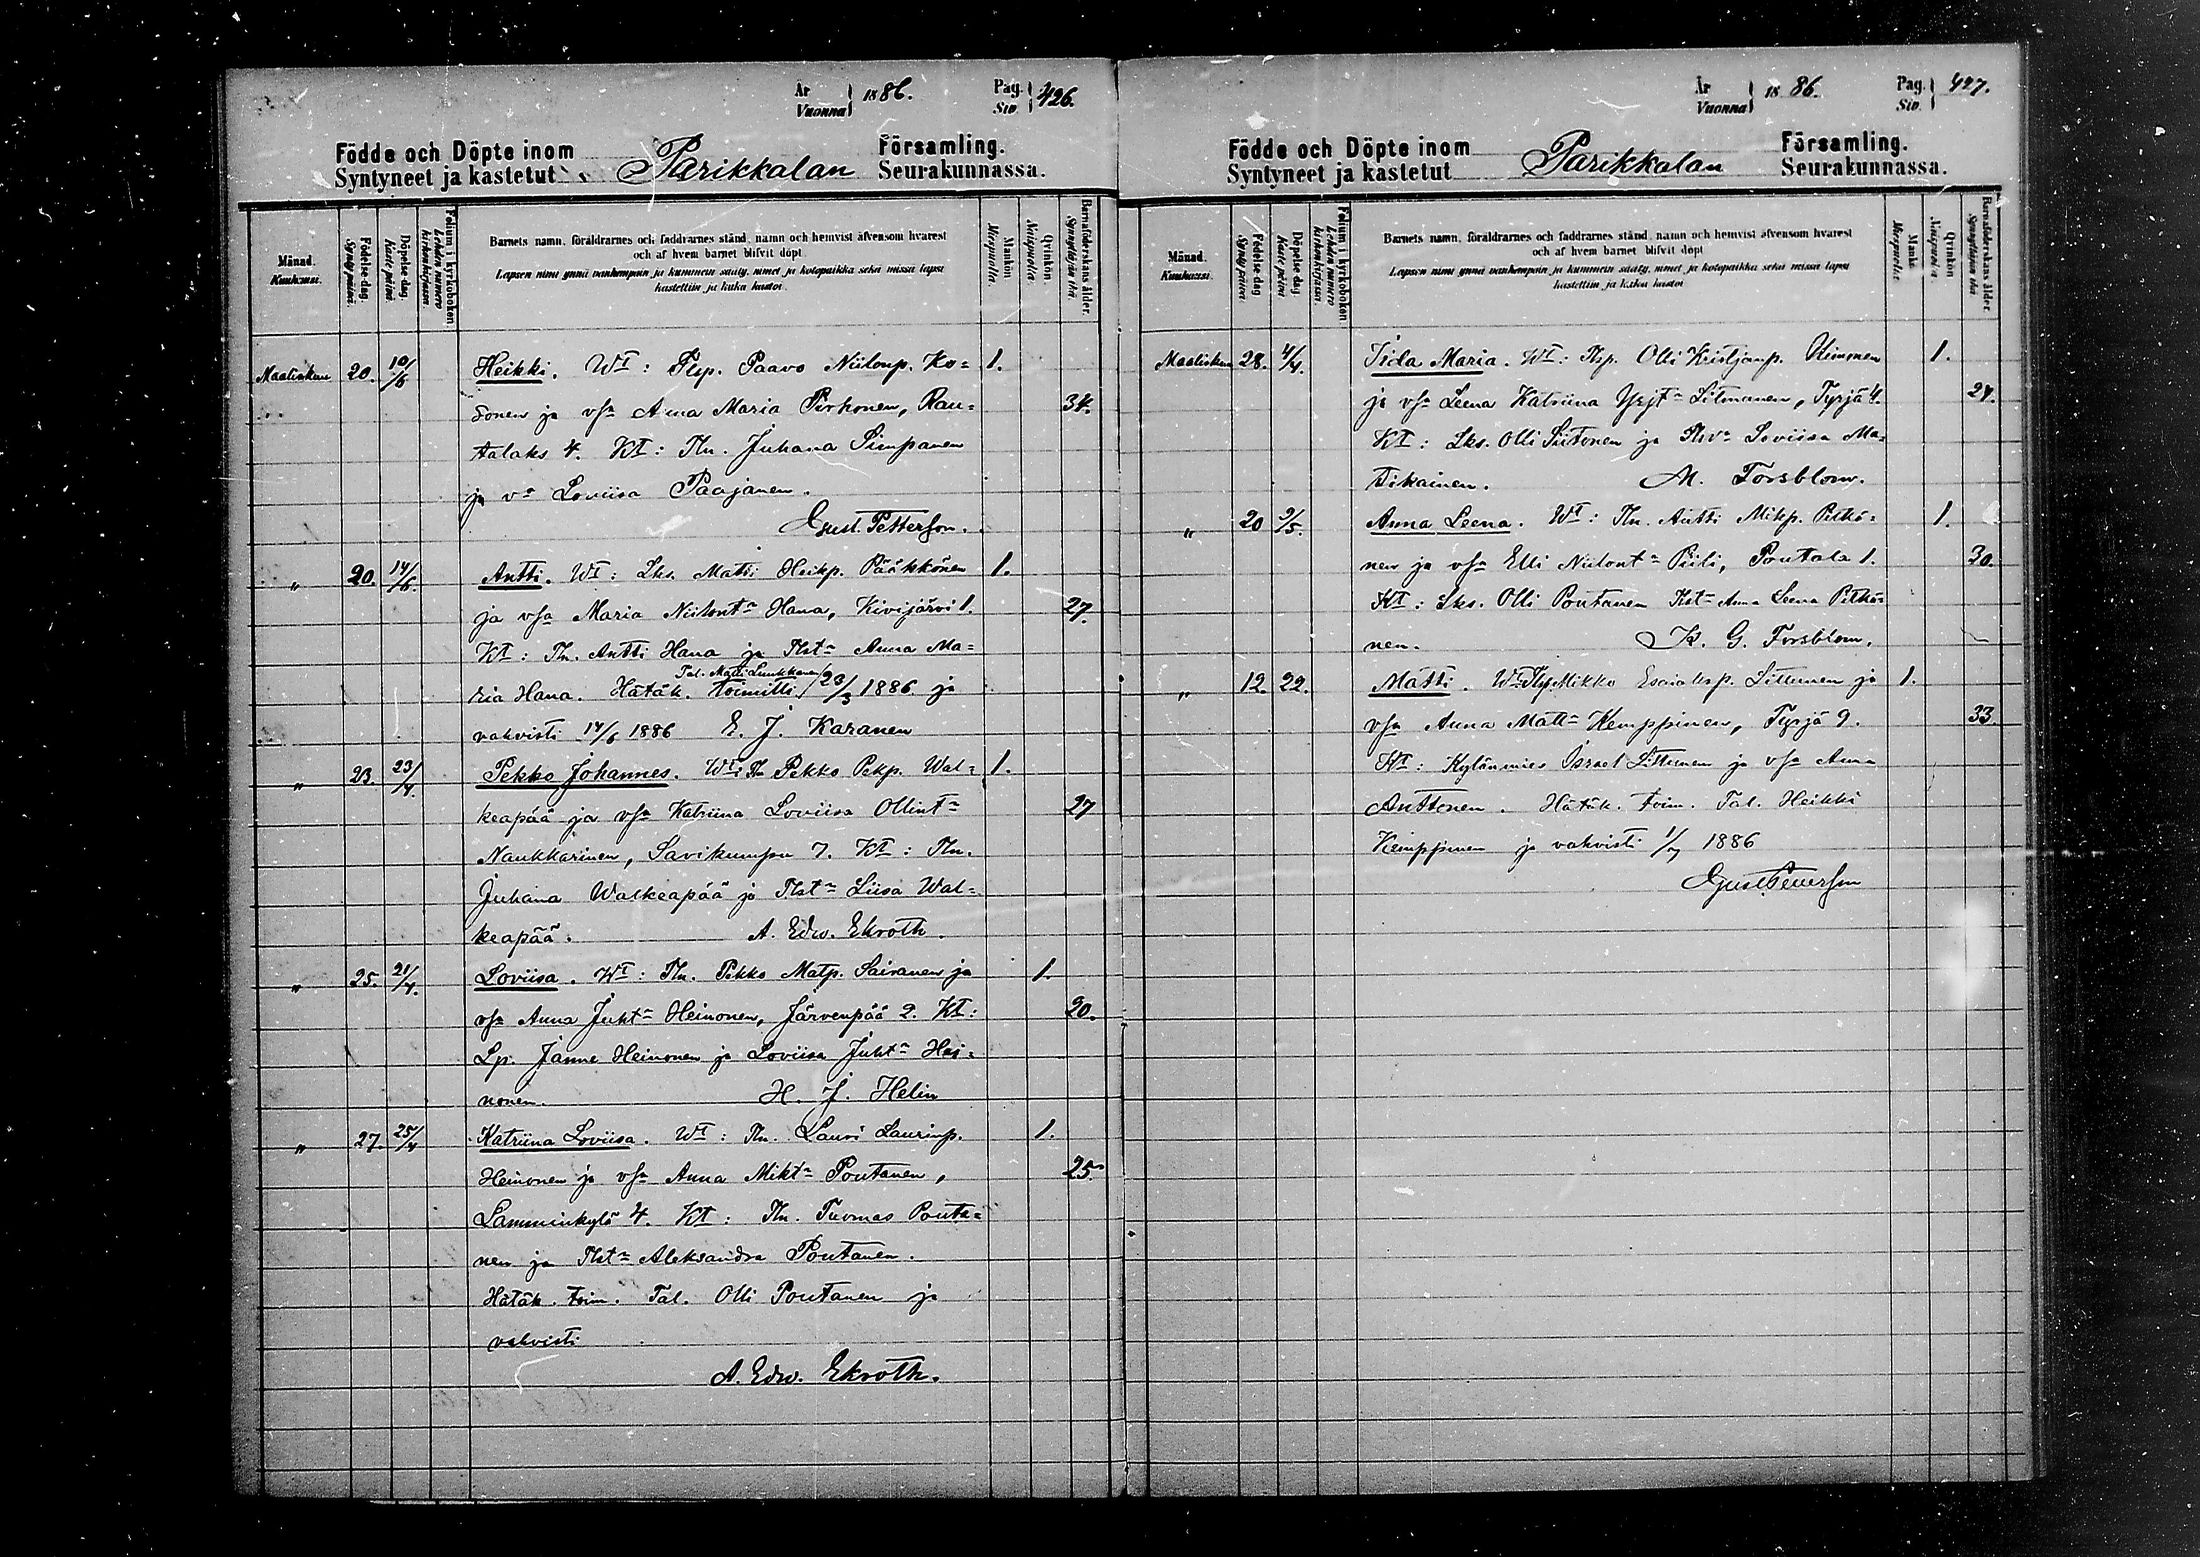 År
Vuonna 1886.
Pag.
Siv. 426.
Födde och Döpte inom
Syntyneet ja kastetut
Parikkalan
Församling.
Seurakunnassa.
Månad.
Kuukausi.
Födelse-dag.
Syntypäivä.
Döpelse-dag.
Kastepäivä
Folium i kyrkoboken.
Lehden numero kirkonkirjassa.
Barnets namn, föräldrarnes och faddrarnes stånd, namn och hemvist äfvensom hvarest
och af hvem barnet blifvit döpt
Lapsen nimi ynnä vanhempain ja kummein sääty, nimet ja kotopaikka sekä missä lapsi
kastettiin ja kuka kastoi.
Mankön.
Miespuolta.
Qvinkön.
Naispuolta.
Barnaföderskans ålder.
Synnyttäjän ikä.
Maaliskuu 20. 10/6 Heikki. WT: Tlsp. Paavo Niilonp. Ko= 1.
sonen ja vsa Anna Maria Pirhonen, Rau= 34.
talaks 4. KT: Tln. Juhana Simpanen
ja va Loviisa Paajanen.
Gust. Petterson.
" 20. 14/6. Antti. WT: Lks. Matti Heikp. Pääkkönen 1.
ja vsa Maria Niilontr Hana, Kivijärvi 1. 27.
KT: Tln. Antti Hana ja Tlstr Anna Ma=
Tal. Matti Luukkanen
ria Hana. Hätäk. toimitti 23/3 1886 ja
vahvisti 14/6 1886 E. J. Karanen
" 23. 23/4. Pekko Johannes. WT: Tln Pekko Pekp. Wal= 1.
keapää ja vsa Katriina Loviisa Ollintr 27
Naukkarinen, Savikumpu 7. KT: Tln.
Juhana Walkeapää ja Tlstr Liisa Wal=
keapää. A. Edw. Ekroth.
" 25. 21/4. Loviisa. WT: Tln. Pekko Matp. Sairanen ja 1.
vsa Anna Juhtr Heinonen, Järvenpää 2. KT: 20.
Lp. Janne Heinonen ja Loviisa Juhtr Hei=
nonen. H. J. Helin
" 27. 25/4 Katriina Loviisa. WT: Tln. Lauri Laurinp. 1.
Heinonen ja vsa Anna Miktr Poutanen, 25.
Lamminkylä 4. KT: Tln. Tuomas Pouta=
nen ja Tlstr Aleksandra Poutanen.
Hätäk. toim. Tal. Olli Poutanen ja
vahvisti
A. Edw. Ekroth.
År
Vuonna 1886.
Pag.
Siv. 427.
Födde och Döpte inom
Syntyneet ja kastetut
Parikkalan
Församling.
Seurakunnassa.
Månad.
Kuukausi.
Födelse-dag
Syntypäivä
Döpelse-dag
Kastepäivä
Folium i kyrkoboken.
Lehden numero kirkonkirjassa.
Barnets namn, föräldrarnes och faddrarnes stånd, namn och hemvist äfvensom hvarest
och af hvem barnet blifvit döpt
Lapsen nimi ynnä vanhempain ja kummein sääty, nimet ja kotopaikka sekä missä lapsi
kastettiin ja kuka kastoi
Mankö.
Miespuolta.
Qvinkön
Naispuolta.
Barnaföderskans ålder.
Synnyttäjän ikä
Maaliskuu 28. 4/4. Iida Maria. WT: Tlsp. Olli Kristjanp. Uimonen 1.
ja vsa Leena Katriina Yrjtr Litmanen, Tyrjä 4. 24.
KT: Lks. Olli Siitonen ja Tlsva Loviisa Ma=
tikainen. M. Forsblom.
" 20 2/5. Anna Leena. WT: Tln. Antti Mikp. Pitkä= 1.
nen ja vsa Elli Niilontr Piili, Poutala 1. 30.
KT: Lks. Olli Poutanen Kstr Anna Leena Pitkä=
nen. K. G. Forsblom.
" 12. 22. Matti. WT: Tlsp Mikko Esaiaksp. Littunen ja 1.
vsa Anna Mattr Kemppinen, Tyrjä 9. 33
KT: Kylänmies Israel Littunen ja vsa Anna
Anttonen. Hätäk. toim. Tal. Heikki
Kemppinen ja vahvisti 1/7 1886
Gust Petterson